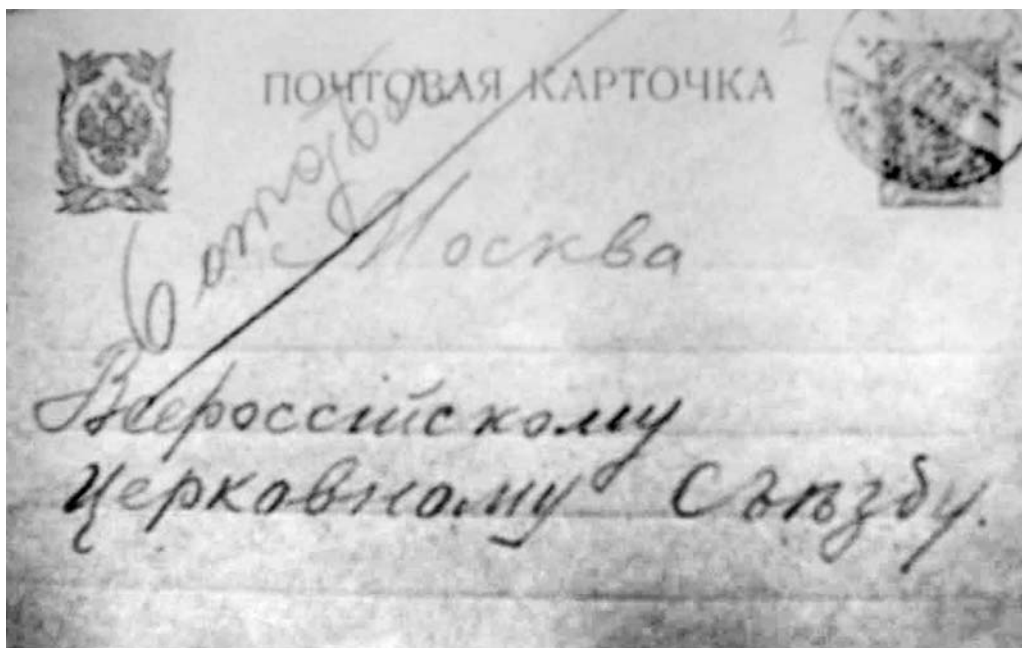 ПОЧТОВАЯ КАРТОЧКА
6 отдѣл
Москва
Всероссійскому
Церковному Съѣзду.